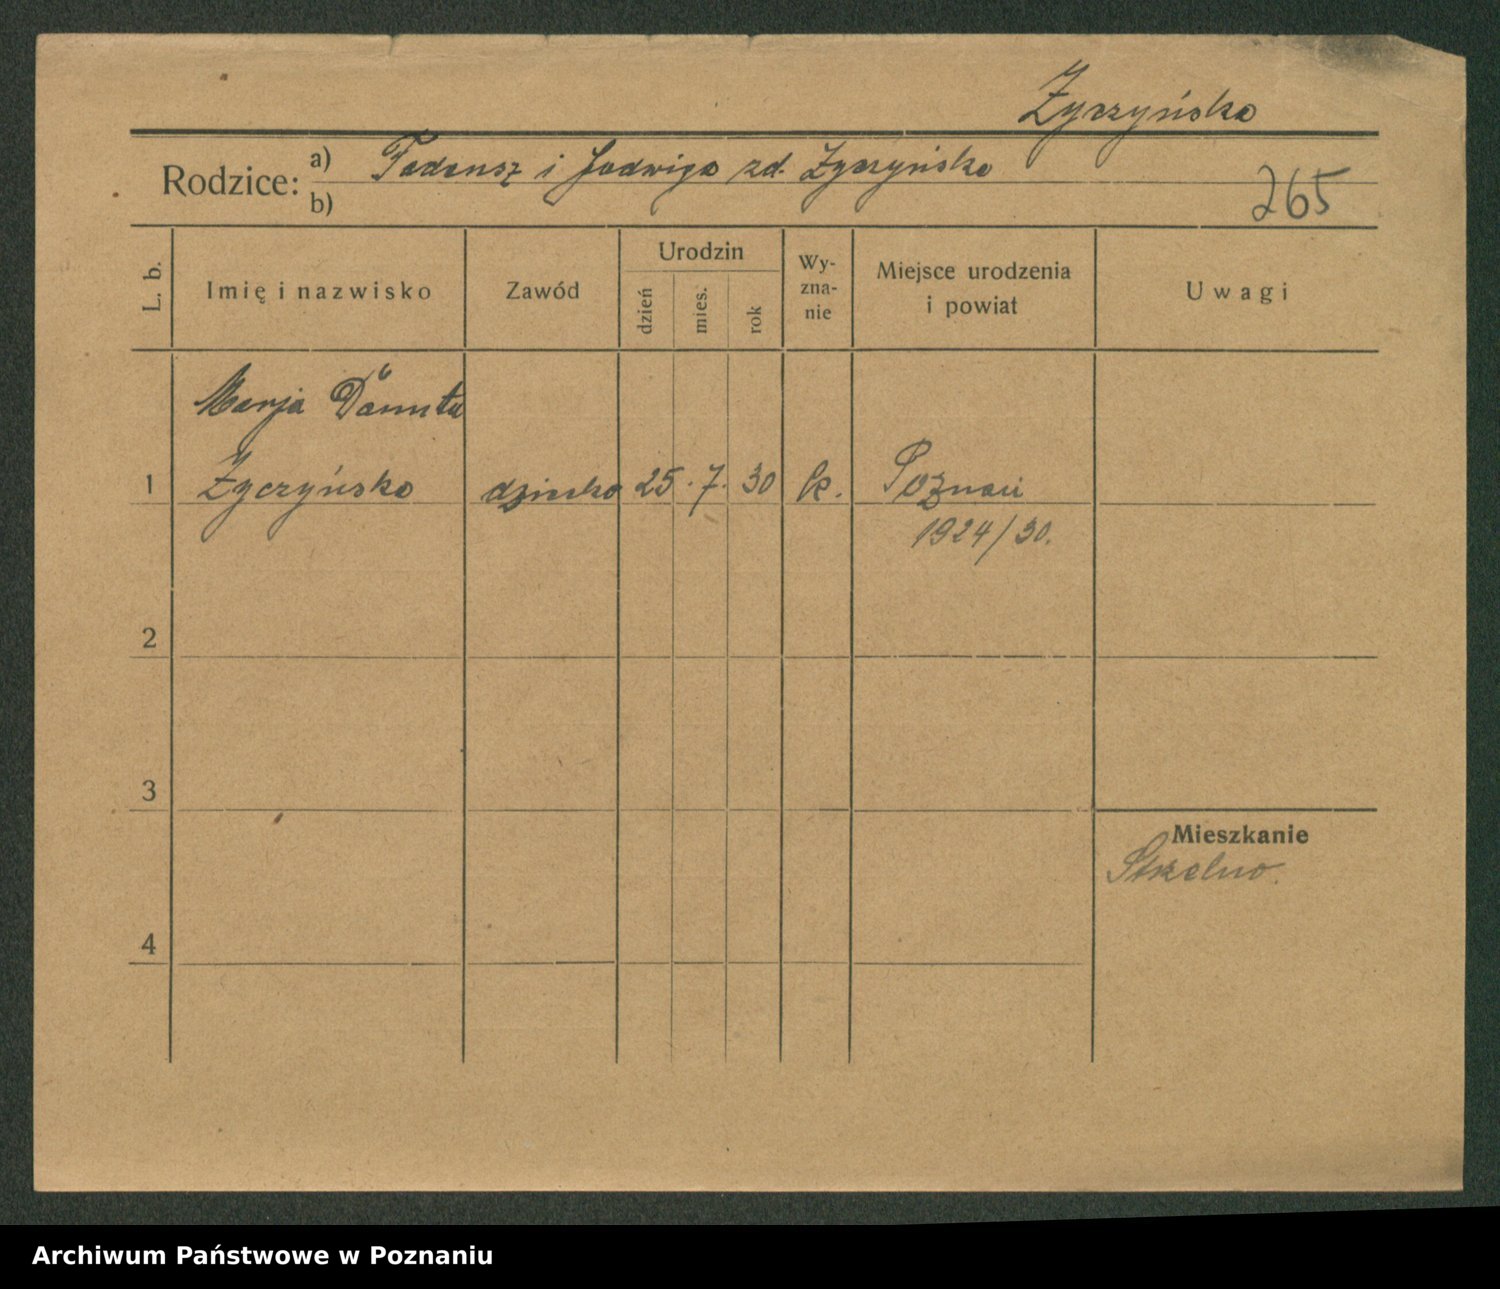 Życzyńska
Rodzice: a) Tadeusz i Jadwiga zd. Życzyńska
b)
265
L. b.
Imię i nazwisko
Zawód
Urodzin
dzień
mies.
rok
Wy-
zna-
nie
Miejsce urodzenia
i powiat
Uwagi
Marja Danuta
1 Życzyńska dziecko 25. 7. 30 k. Poznań
1924/30.
2
3
Mieszkanie
Strzelno.
4
Archiwum Państwowe w Poznaniu